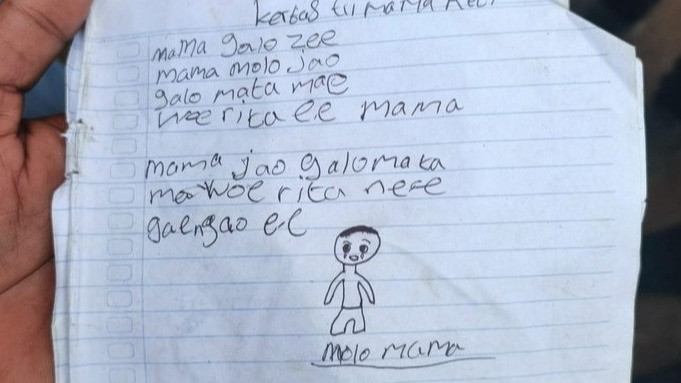 kertas tii mama reti
mama galo zee
mama molo jao
galo mata mae
woe rita ee mama
mama jao galo mata
mae woe rita ne e
gae ngao ee
molo mama